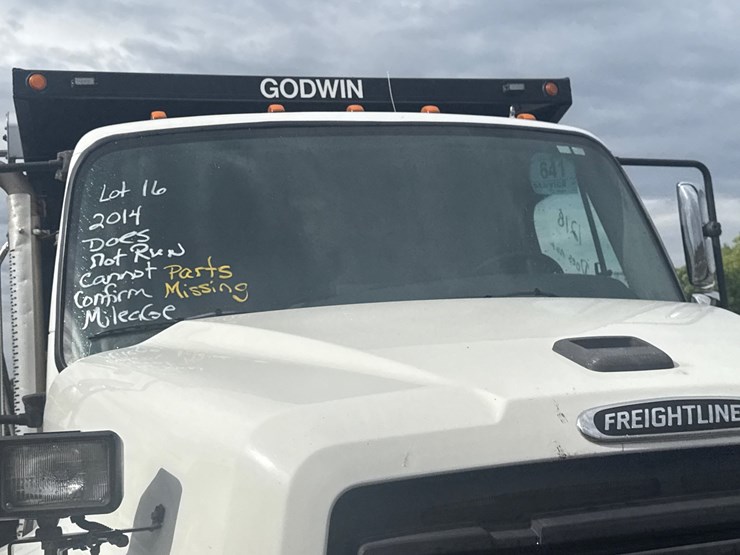 GODWIN
Lot 16
2014
Does
Not Run
Cannot Parts
Confirm Missing
Mileage
641
FREIGHTLINE